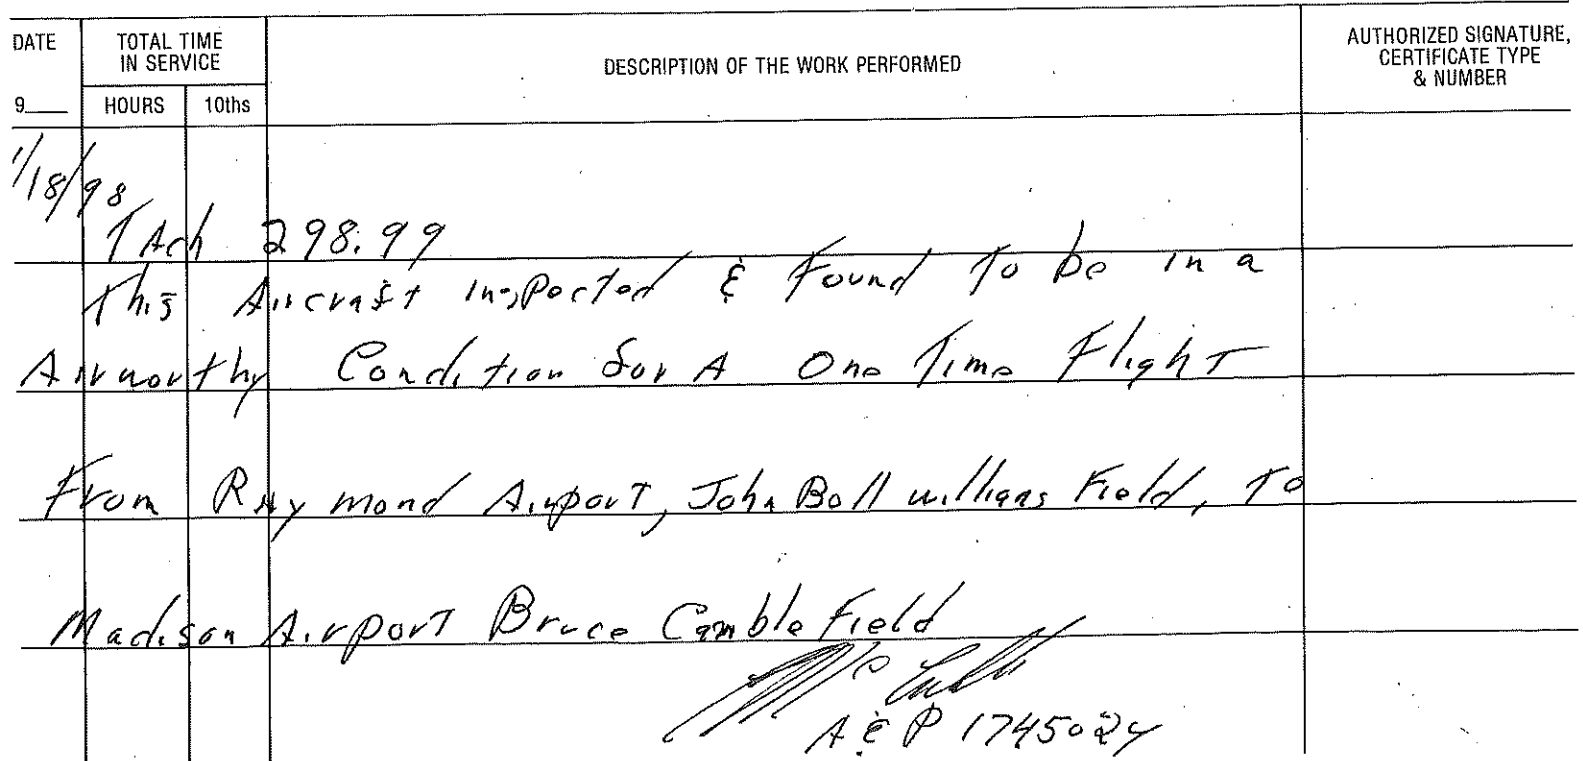 DATE
TOTAL TIME
IN SERVICE
HOURS
10ths
DESCRIPTION OF THE WORK PERFORMED
AUTHORIZED SIGNATURE,
CERTIFICATE TYPE
& NUMBER
9___
1/18/98
TAch 298.99
This Aircraft Inspected & Found To be in a
Airworthy Condition for A One Time Flight
From Raymond Airport, John Bell williams Field, To
Madison Airport Bruce Camble Field
A & P 1745024